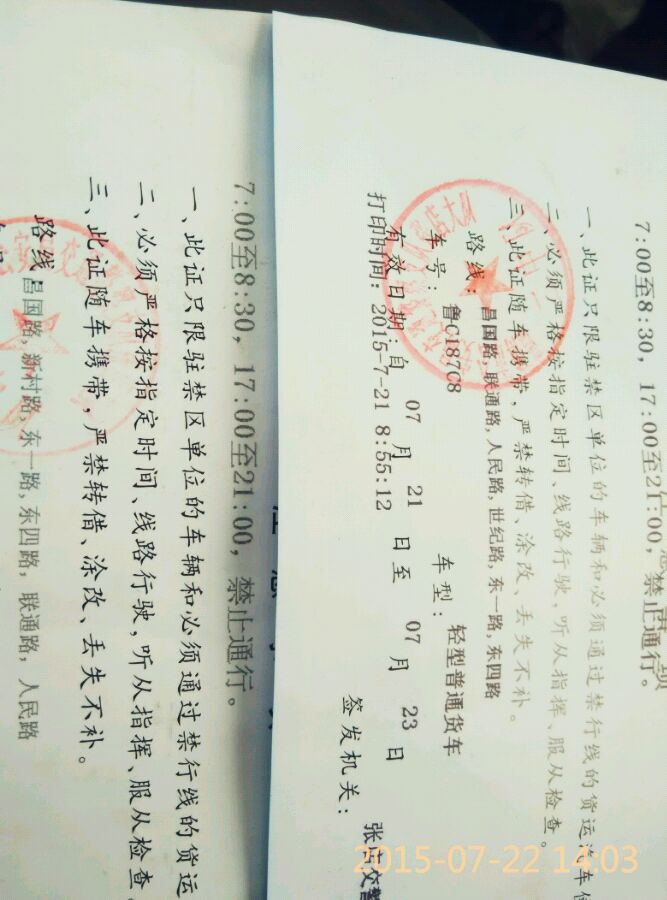 7:00至8:30, 17:00至21:00, 禁止通行。
一、此证只限驻禁区单位的车辆和必须通过禁行线的货运汽车
二、必须严格按指定时间、线路行驶，听从指挥、服从检查。
三、此证随车携带，严禁转借、涂改、丢失不补。
路线：昌国路,联通路,人民路,世纪路,东一路,东四路
车号：鲁C187C8 车型：轻型普通货车
有效日期:自 07 月 21 日至 07 月 23 日
打印时间：2015-7-21 8:55:12
签发机关：张店交警
7:00至8:30, 17:00至21:00, 禁止通行。
一、此证只限驻禁区单位的车辆和必须通过禁行线的货运
二、必须严格按指定时间、线路行驶，听从指挥、服从检查
三、此证随车携带，严禁转借、涂改、丢失不补。
路线：昌国路,新村路,东一路,东四路,联通路,人民路
2015-07-22 14:03